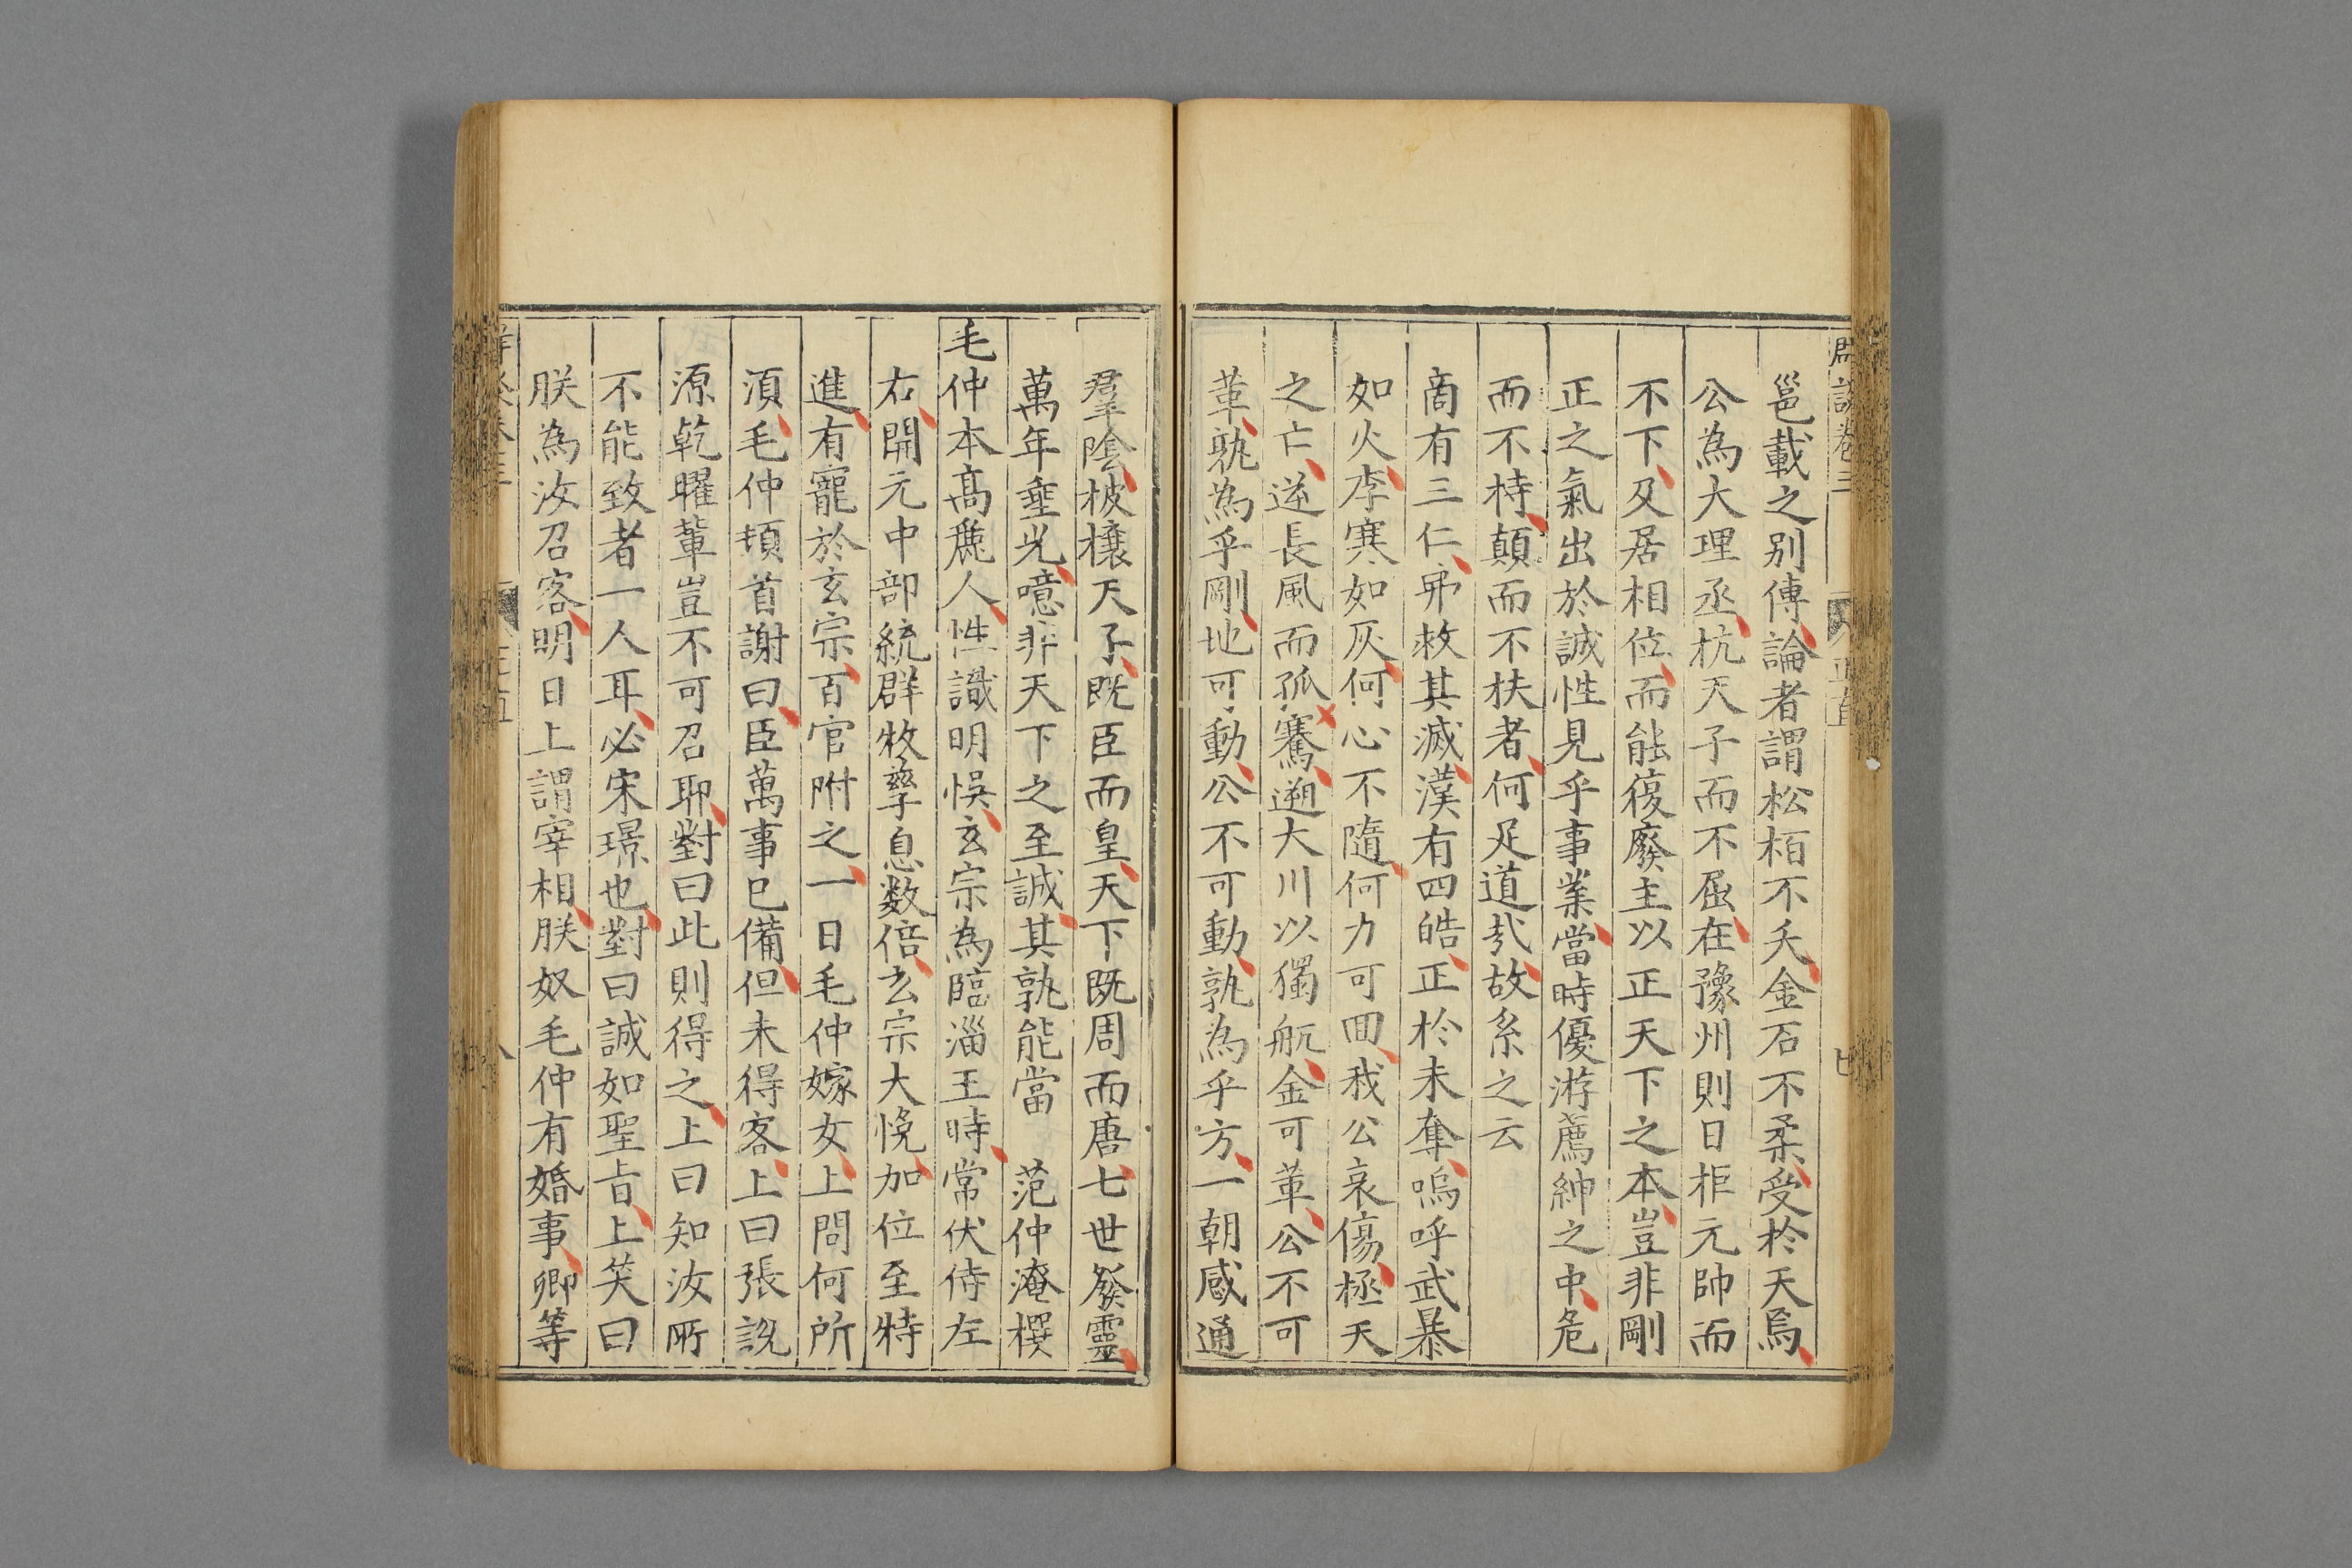 邕載之别傳論者謂松栢不夭金石不柔受於天焉
公為大理丞抗天子而不屈在豫州則日拒元帥而
不下及居相位而能復廢主以正天下之本豈非剛
正之氣出於誠性見乎事業當時優游薦紳之中危
而不持顛而不扶者何足道哉故系之云
商有三仁弗救其滅漢有四皓正於未奪嗚呼武暴
如火李寒如灰何心不隨何力可囬我公哀傷拯天
之亡逆長風而孤騫遡大川以獨航金可革公不可
革孰為乎剛地可動公不可動孰為乎方一朝感通
羣陰披攘天子既臣而皇天下既周而唐七世發靈
萬年垂光噫非天下之至誠其孰能當　范仲淹撰
毛仲本高麗人性識明悞玄宗為臨淄王時常伏侍左
右開元中部統群牧孳息数倍玄宗大悦加位至特
進有寵於玄宗百官附之一日毛仲嫁女上問何所
湏毛仲頓首謝曰臣萬事已備但未得客上曰張説
源乾曜軰豈不可召耶對曰此則得之上曰知汝所
不能致者一人耳必宋璟也對曰誠如聖旨上笑曰
朕為汝召客明日上謂宰相朕奴毛仲有婚事卿等